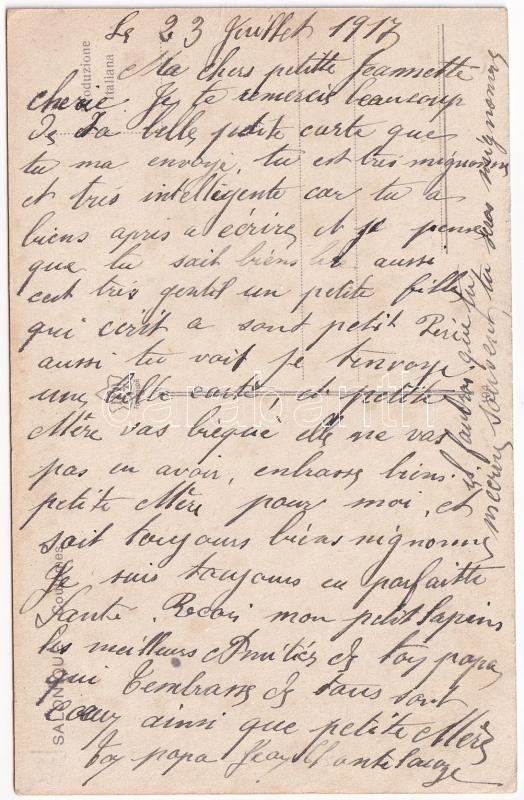 Le 23 Juillet 1917
Ma chers petitte Jeannette
cherie Je te remercis beaucoup
de ta belle petite carte que
tu ma envoye, tu est très mignonne
et très intelligente car tu a
biens apris a écrire et je pense
que tu sait biens lir aussi
cest très gentil un petite fille
qui ecrit a sont petit Pere
aussi tu voit je tenvoye
une belle carte, et petite
Mère vas bisquè elle ne vas
pas en avoir, enbrasse biens
petite Mère pour moi, et
soit toujours biens mignonne
Je suis toujours en parfaitte
Santé. Recois mon petit lapin
les meilleurs Amitiés de toy papa
qui tembrasse de tous sont
coeur ainsi que petite Mère
toy papa Jean
il faudras que tu
mecrive souvent, tu seras mignonne
roduzione
italiana
SALONIQUE
carabanth